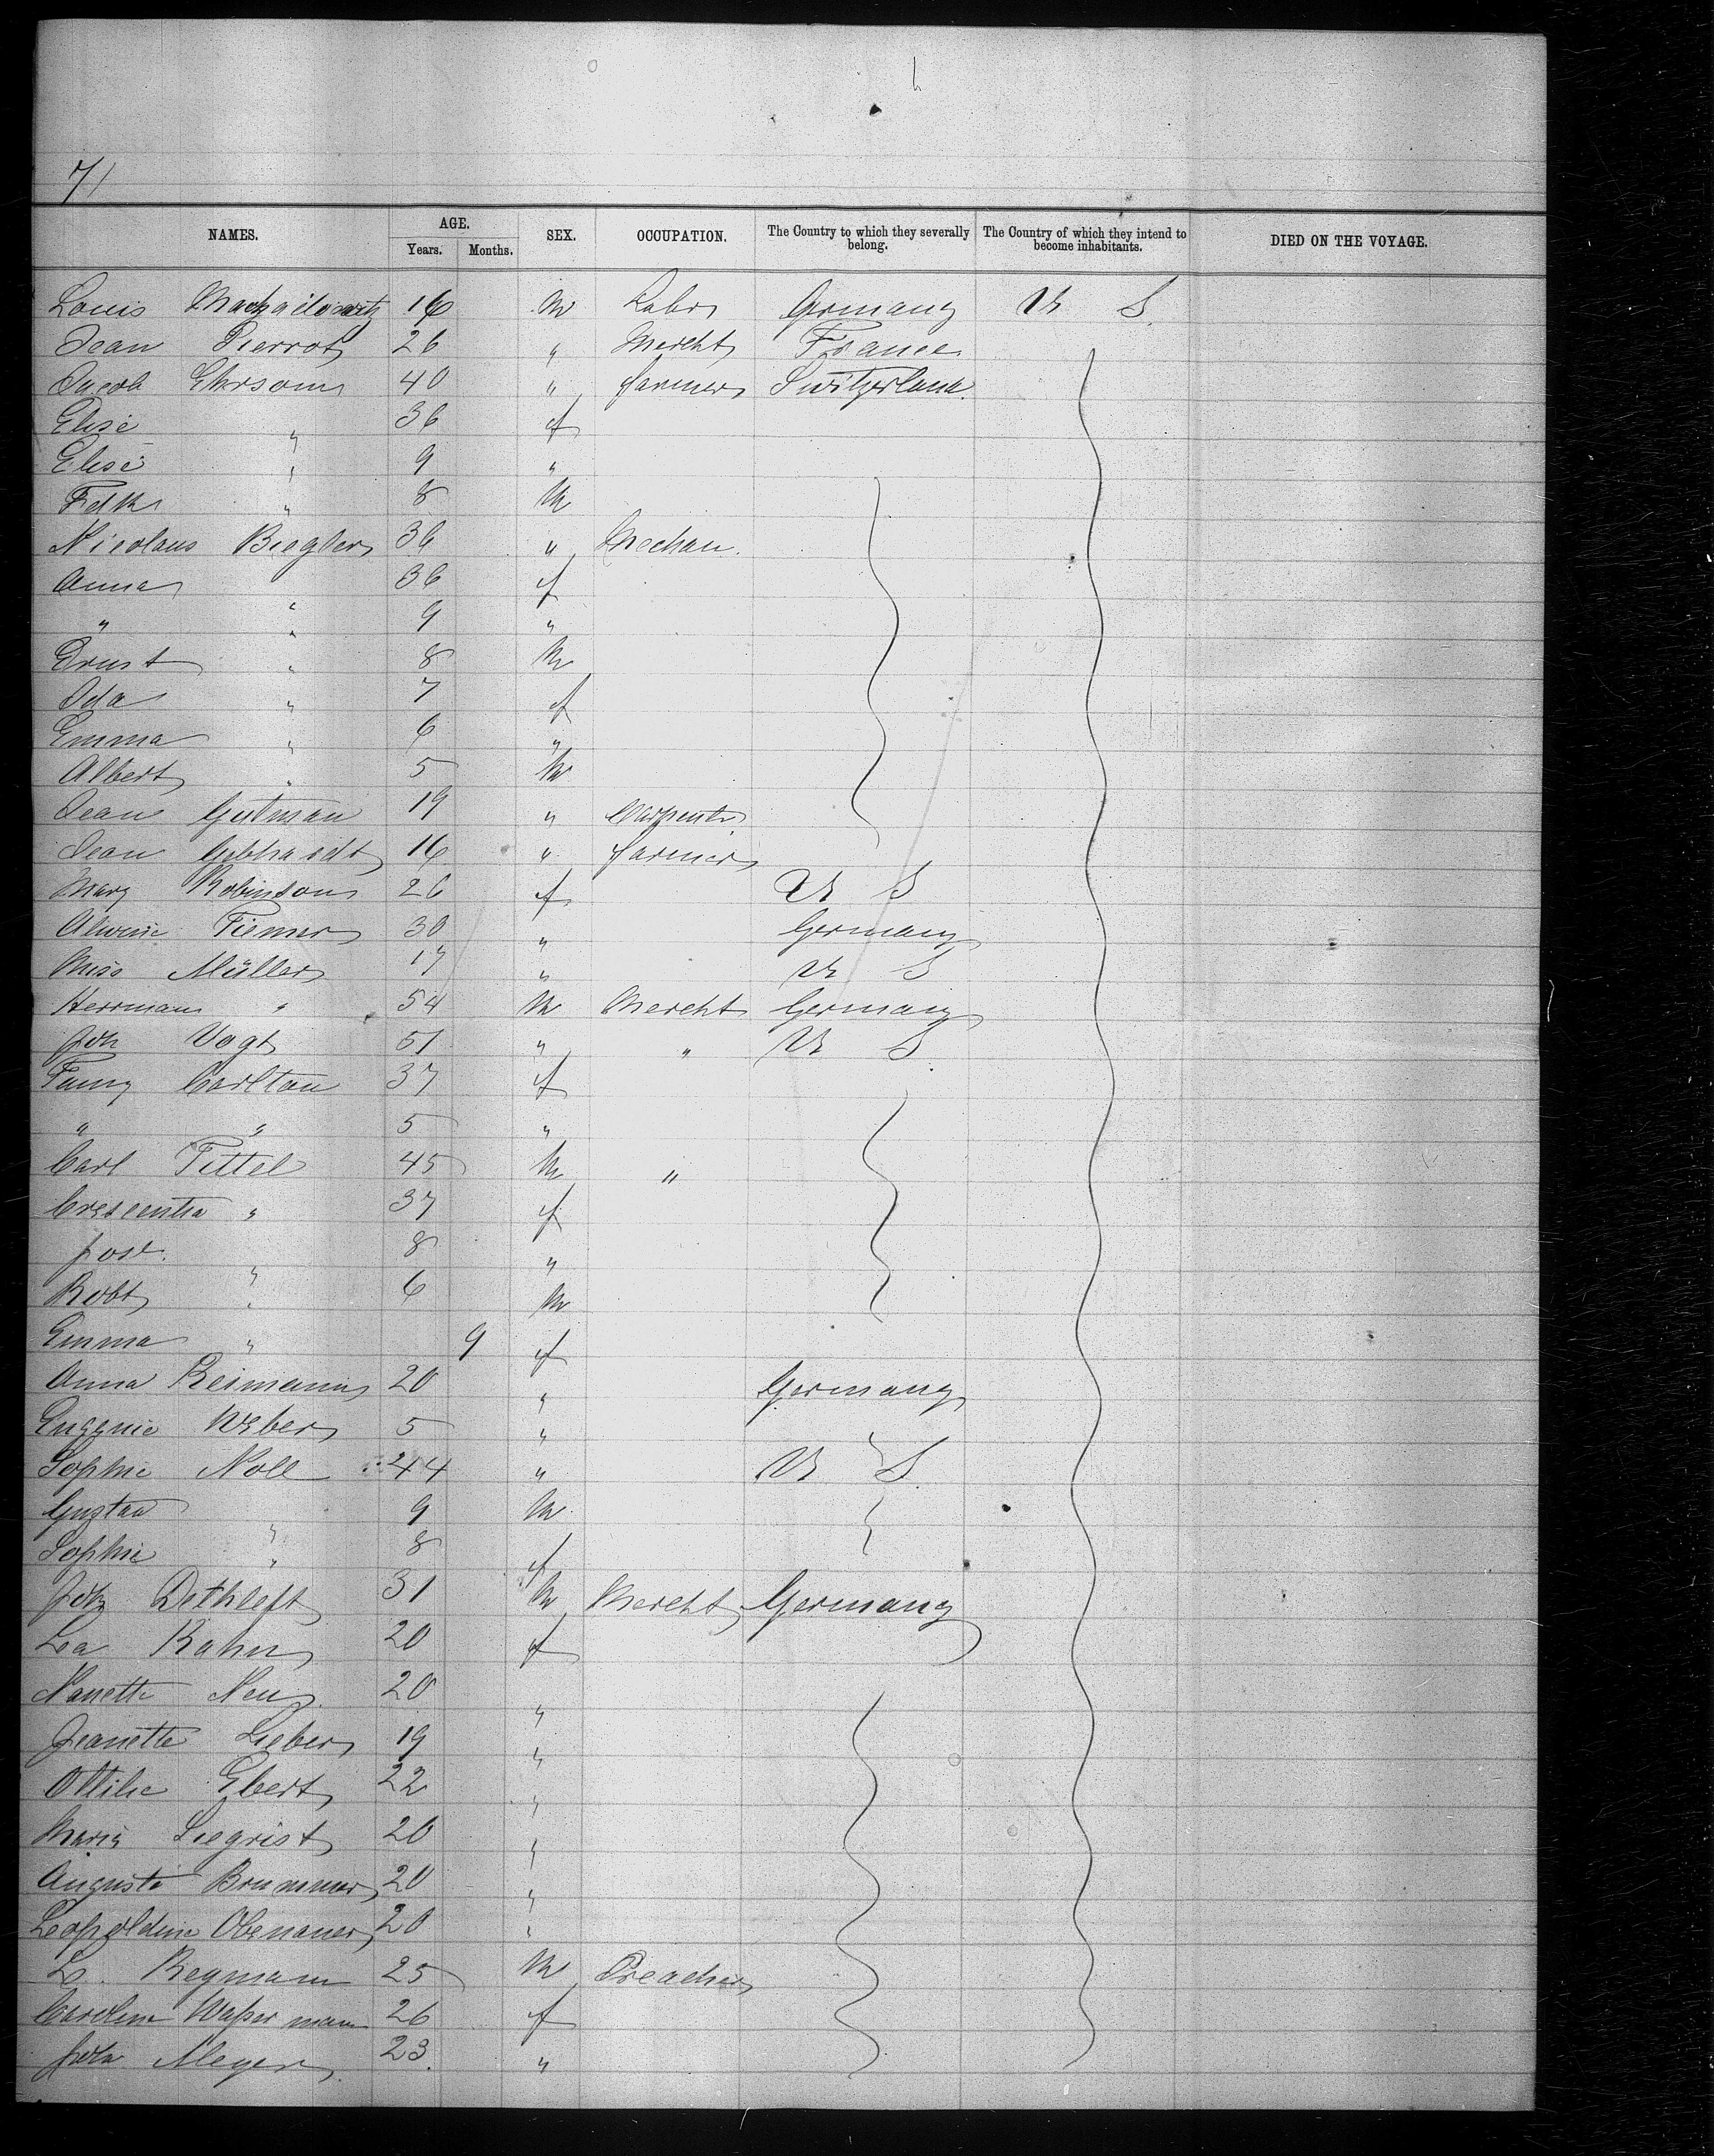 71
NAMES. AGE. Years. Months. SEX. OCCUPATION. The Country to which they severally belong. The Country of which they intend to become inhabitants. DIED ON THE VOYAGE.
Louis 16 M Labr Germany U S
Jean Pierrot 26 " Mercht France
Jacob Ehrsom 40 " farmer Switzerland
Elise " 36 f
Elise " 9 "
Fedk " 8 M
Nicolaus Biegler 36 " Mechan.
Anna " 36 f
" " 9 "
Ernst " 8 M
Ida " 7 f
Emma " 6 "
Albert " 5 M
Jean Gutman 19 " Carpentr.
Jean Gebhardt 16 " farmer
Mary Robinson 26 f U S
Alwine Tiemer 30 " Germany
Miss Müller 17 " U S
Herrman " 54 M Mercht Germany
Joh Vogt 51 " " U S
Fany Carlton 37 f
" " 5 "
Carl Tittel 45 M "
Crescentia " 37 f
Jose. " 8 "
Robt " 6 M
Emma " 9 f
Anna Reimann 20 " Germany
Eugenie Weber 5 "
Sophie Noll 44 " U S
Gustav " 9 M
Sophie " 8 f
Joh Dethleft 31 M Mercht Germany
Lea Kahn 20 f
Nanette Neu 20 "
Jeanette Lieber 19 "
Ottilie Ebert 22 "
Maria Siegrist 20 "
Auguste Brummer 20 "
Leopoldine Obenauer 20 "
L. Regmann 25 M Preacher
Caroline Waßermann 26 f
Joha Meyer 23. "